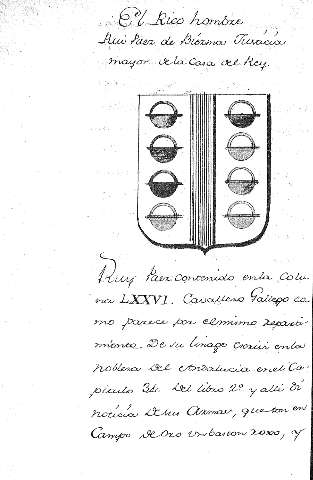 El Rico hombre
Rui Paez de Biezma Justicia
mayor de la Casa del Rey.
Ruy Paez contenido en la Colu
na LXXVI. Cavallero Gallego co
mo parece por el mismo reparti
miento. De su linage escrivi en la
nobleza del Andalucia en el Ca
pitulo del libro 2º y alli di
noticia de sus Armas, que son en
Campo de Oro un baston roxo, y